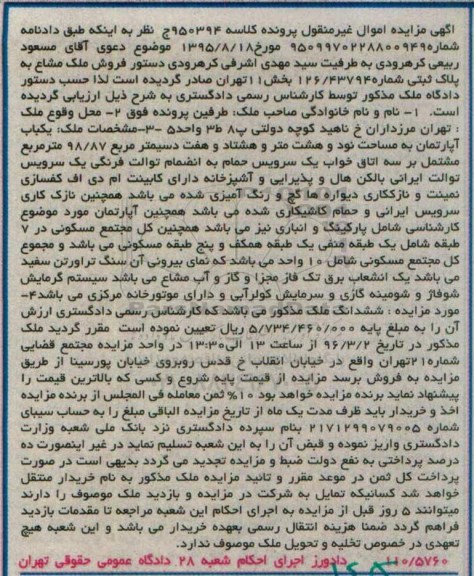 آگهی مزایده اموال غیرمنقول پرونده کلاسه ۹۵۰۳۹۴ج نظر به اینکه طبق دادنامه
شماره۹۵۰۹۹۷۰۲۲۸۸۰۰۹۴۹ مورخ۱۳۹۵/۸/۱۸ موضوع دعوی آقای مسعود
ربیعی کرهرودی به طرفیت سید مهدی اشرفی کرهرودی دستور فروش ملک مشاع به
پلاک ثبتی شماره۱۲۶/۴۳۷۹۴ بخش۱۱تهران صادر گردیده است لذا حسب دستور
دادگاه ملک مذکور توسط کارشناس رسمی دادگستری به شرح ذیل ارزیابی گردیده
است. ۱- نام و نام خانوادگی صاحب ملک: طرفین پرونده فوق ۲- محل وقوع ملک
: تهران مرزداران خ ناهید کوچه دولتی پ۸ ط۳ واحد۵ -۳-مشخصات ملک: یکباب
آپارتمان به مساحت نود و هشت متر و هشتاد و هفت دسیمتر مربع ۹۸/۸۷ مترمربع
مشتمل بر سه اتاق خواب یک سرویس حمام به انضمام توالت فرنگی یک سرویس
توالت ایرانی بالکن هال و پذیرایی و آشپزخانه دارای کابینت ام دی اف کفسازی
نمینت و نازککاری دیواره ها گچ و رنگ آمیزی شده می باشد همچنین نازک کاری
سرویس ایرانی و حمام کاشیکاری شده می باشد همچنین آپارتمان مورد موضوع
کارشناسی شامل پارکینگ و انباری نیز می باشد همچنین کل مجتمع مسکونی در ۷
طبقه شامل یک طبقه منفی یک طبقه همکف و پنج طبقه مسکونی می باشد و مجموع
کل مجتمع مسکونی شامل ۱۰ واحد می باشد که نمای بیرونی آن سنگ تراورتن سفید
می باشد یک انشعاب برق تک فاز مجزا و گاز و آب مشاع می باشد سیستم گرمایش
شوفاژ و شومینه گازی و سرمایش کولرآبی و دارای موتورخانه مرکزی می باشد۴-
مورد مزایده : ششدانگ ملک مذکور می باشد که کارشناس رسمی دادگستری ارزش
آن را به مبلغ پایه ۵/۷۳۴/۴۶۰/۰۰۰ ریال تعیین نموده است. مقرر گردید ملک
مذکور در تاریخ ۹۶/۳/۲ از ساعت ۱۳ الی۱۳:۳۰ در واحد مزایده مجتمع قضایی
شماره۲۱تهران واقع در خیابان انقلاب خ قدس روبروی خیابان پورسینا از طریق
مزایده به فروش برسد مزایده از قیمت پایه شروع و کسی که بالاترین قیمت را
پیشنهاد نماید برنده مزایده خواهد بود ۱۰% ثمن معامله فی المجلس از برنده مزایده
اخذ و خریدار باید ظرف مدت یک ماه از تاریخ مزایده الباقی مبلغ را به حساب سیبای
شماره ۲۱۷۱۲۹۹۰۷۹۰۰۵ بنام سپرده دادگستری نزد بانک ملی شعبه وزارت
دادگستری واریز نموده و قبض آن را به این شعبه تسلیم نماید در غیر اینصورت ده
درصد پرداختی به نفع دولت ضبط و مزایده تجدید می گردد بدیهی است در صورت
پرداخت کل ثمن در موعد مقرر و تائید مزایده ملک مذکور به نام خریدار منتقل
خواهد شد کسانیکه تمایل به شرکت در مزایده و بازدید ملک موصوف را دارند
میتوانند ۵ روز قبل از مزایده به اجرای احکام این شعبه مراجعه تا مقدمات بازدید
فراهم گردد ضمنا هزینه انتقال رسمی بعهده خریدار می باشد و این شعبه هیچ
تعهدی در خصوص تخلیه و تحویل ملک موصوف ندارد.
۱۱۰/۵۷۶۰ دادورز اجرای احکام شعبه ۲۸ دادگاه عمومی حقوقی تهران